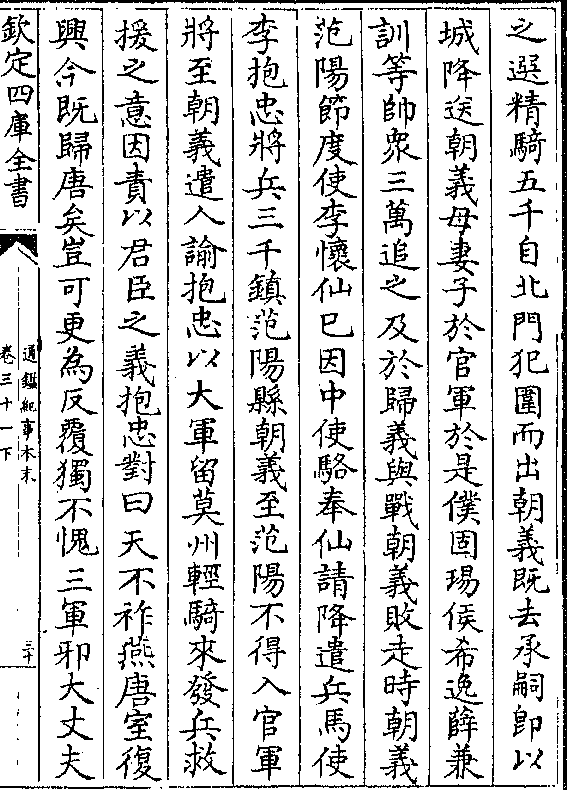 之選精騎五千自北門犯圍而出朝義既去承嗣即以
城降送朝義母妻子於官軍於是僕固瑒侯希逸薛兼
訓等帥衆三萬追之及於歸義與戰朝義敗走時朝義
范陽節度使李懷仙已因中使駱奉仙請降遣兵馬使
李抱忠將兵三千鎮范陽縣朝義至范陽不得入官軍
將至朝義遣人諭抱忠以大軍留莫州輕騎來發兵救
援之意因責以君臣之義抱忠對曰天不祚燕唐室復
興今既歸唐矣豈可更為反覆獨不愧三軍邪大丈夫
欽定四庫全書
通鑑紀事本末
卷三十一下
三十